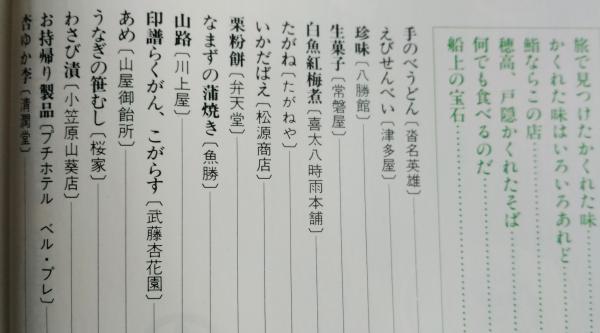 旅で見つけたかくれた味
かくれた味はいろいろあれど
鮨ならこの店
穂高、戸隠かくれたそば
何でも食べるのだ
船上の宝石
手のべうどん〔沓名英雄〕
えびせんべい〔津多屋〕
珍味〔八勝館〕
生菓子〔常磐屋〕
白魚紅梅煮〔喜太八時雨本舗〕
たがね〔たがねや〕
いかだばえ〔松源商店〕
栗粉餅〔弁天堂〕
なまずの蒲焼き〔魚勝〕
山路〔川上屋〕
印譜らくがん、こがらす〔武藤杏花園〕
あめ〔山屋御飴所〕
うなぎの笹むし〔桜家〕
わさび漬〔小笠原山葵店〕
お持帰り製品〔プチホテル ベル・プレ〕
杏ゆか李〔清潤堂〕